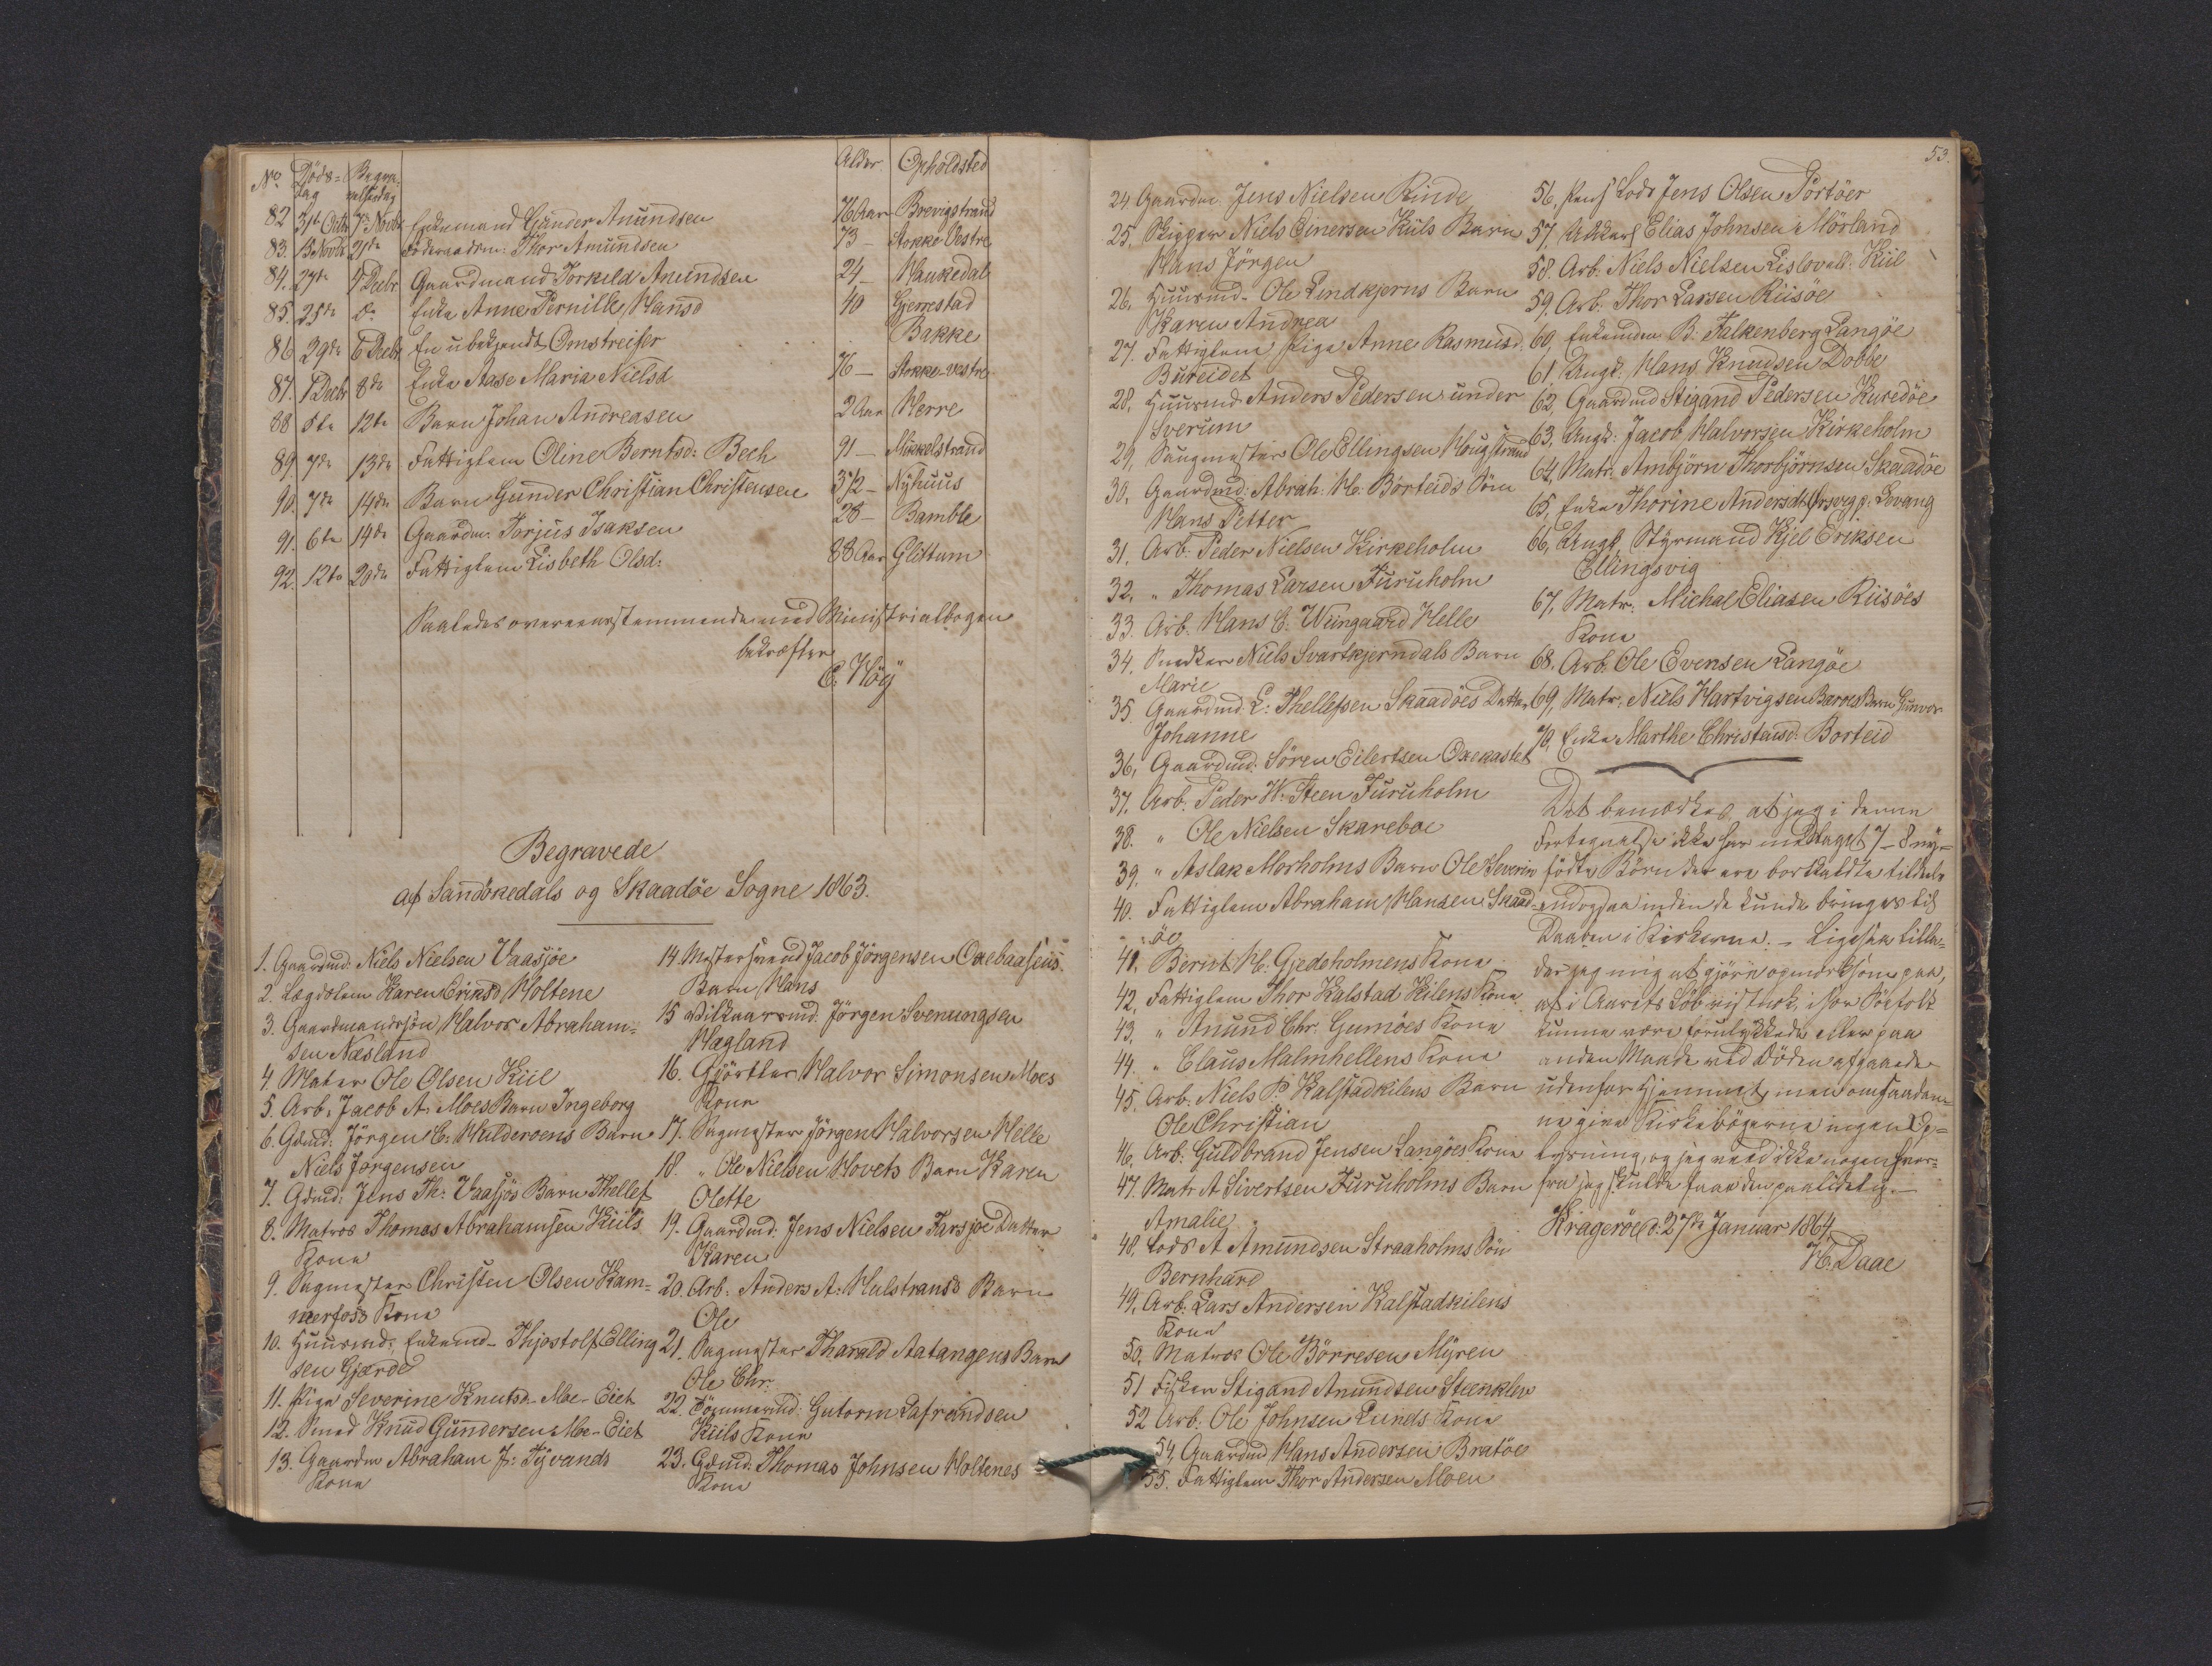 No Döds= Begra- Alder Opholdsted
Dag velsesdag
82 31te Octbr 7de Novbr Enkemand Gunder Anundsen 76 Aar Brevigstrand
83. 15 Novbr 21de Föderaadsm: Thor Amundsen 73 - Stokke Vestre
84. 27de 4 Decbr Gaardmand Torkild Anundsen 24 - Haukedal
85. 25de do Enke Anne Pernille Hansd 40 Gjerrestad
86 29de 6 Decbr En ubekjendt Omstreifer Bakke
87. 1 Decbr 8de Enke Aase Maria Nielsd 76 - Stokke-vestre
88 5te 12te Barn Johan Andreasen 2 Aar Herre
89. 7de 13de Fattiglem Oline Berntsd: Bech 91 - Mikkelstrand
90. 7de 14de Barn Gunder Christian Christensen 3½ - Nyhuus
91. 6te 14de Gaardm. Torjus Isaksen 28 - Bamble
92. 12te 20de Fattiglem Lisbeth Olsd: 88 Aar Glittum
Saaledes overeensstemmende med Ministrialbogen
bekræfter
C. Höy
Begravede
af Sandökedals og Skaadöe Sogne 1863.
1. Gaardmd: Niels Nielsen Vaasjöe
2. Lægdslem Karen Eriksd Holtene
3. Gaardmandssön Halvor Abraham=
sen Næsland
4. Maler Ole Olsen Kiil
5. Arb. Jacob A. Moes Barn Ingeborg
6. Gdmd: Jörgen C. Hulderoens Barn
Niels Jörgensen
7. Gdmd: Jens Th: Vaasjös Barn Thellef
8. Matros Thomas Abrahamsen Kiils
Kone
9. Sagmester Christen Olsen Kam=
merfoss Kone
10. Huusmd: Enkemd- Thjostolf Elling
sen Gjærde
11. Pige Severine Knutsd- Moe-Eiet
12. Smed Knud Gundersen Moe-Eiet
13. Gaardm Abraham J: Tyvands
Kone
14. Mestersvend Jacob Jörgensen Oxebaasens
Barn Hans
15 Vilkaarsmd. Jörgen Svenungsen
Hægland
16. Gjörtler Halvor Simonsen Moes
Kone
17. Sagmester Jörgen Halvorsen Helle
18. " Ole Nielsen Hovets Barn Karen
Olette
19. Gaardmd: Jens Nielsen Farsjöe Datter
Karen
20. Arb. Anders A. Hulstrands Barn
Ole
21. Sagmester Tharald Aatangens Barn
Ole Chr.
22. Tömmermd: Gutorm Lafrandsen
Kiils Kone
23. Gdmd. Thomas Johnsen Holtenes
Kone
53.
24. Gaardm. Jens Nielsen Rinde
25. Skipper Niels Einersen Kiils Barn
Hans Jörgen
26. Huusmd- Ole Lindkjerns Barn
Karen Andrea
27. Fattiglem Pige Anne Rasmusd.
Bureidet
28. Huusmd Anders Pedersen under
Sverum
29, Saugmester Ole Ellingsen Haugstrand
30. Gaardmd: Abrah: H. Börteids Sön
Hans Petter
31. Arb. Peder Nielsen Kirkeholm
32. " Thomas Larsen Furuholm
33. Arb. Hans C. Wiingaard Helle
34. Snedker Niels Svartkjerndals Barn
Marie
35 Gaardmd. L: Thellefsen Skaadöes Datter
Johanne
36, Gaardmd. Sören Eilertsen Oxekastet
37. Arb. Peder W. Steen Furuholm
38. " Ole Nielsen Skareboe
39. " Aslak Morholms Barn Ole Severin
40. Fattiglem Abraham Hansen Skaad=
öe
41. Bernt H. Gjedeholmens Kone
42. Fattiglem Thor Kalstad Kilens Kone
43. " Anund Chr. Gumöes Kone
44. " Claus Malmhellens Kone
45. Arb. Niels P. Kalstadkilens Barn
Ole Christian
46. Arb. Guldbrand Jensen Langöes Kone
47. Matr A Sivertsen Furuholms Barn
Amalie
48. Lods A Amundsen Straaholms Sön
Bernhard
49. Arb. Lars Andersen Kalstadkilens
Kone
50. Matros Ole Börresen Myren
51 Fisker Stigand Anundsen Steenklev
52 Arb. Ole Johnsen Lunds Kone
54, Gaardmd Hans Andersen Bratöe
55. Fattiglem Thor Andersen Moen
56. Pens Lods Jens Olsen Portöer
57. Ungkarl Elias Johnsen Mörland
58. Arb. Niels Nielsen Lislovald. Kiil
59. Arb. Thor Larsen Riisöe
60, Enkemden B. Falkenberg Langöe
61 Ungk. Hans Knudsen Dobbe
62, Gaardmd Stigand Pedersen Kuredöe
63, Ungk: Jacob Halvorsen Kirkeholm
64, Matr. Ambjörn Thorbjörnsen Skaadöe
65, Enke Thorine Andersdt p: Lovang
66, Ungk Styrmand Kjel Eriksen
Ellingsvig
67, Matr. Michal Eliasen Riisöes
Kone
68, Arb. Ole Evensen Langöe
69, Matr. Niels Hartvigsen Baröes Barn Gunvor
70, Enke Marthe Christensd. Borteid
Det bemærkes, at jeg i denne
Fortegnelse ikke har medtaget 7-8 ny=
födte Börn der ere bortkaldte tildeels
endogsaa inden de kunde bringes til
Daaben i Kirkerne. - Ligesaa tilla=
der jeg mig at gjöre opmærksom paa,
at i Aarets Löb vistnok især Söefolk
kunne være forulykkede eller paa
anden Maade ved Döden afgaaede
udenfor Hjemmet, men om saadan=
ne give Kirkebögerne ingen Op=
lysning, og jeg veed ikke nogen hvor=
fra jeg skulde faae den paalidelig.-
Krageröe d. 27de Januar 1864.
H. Daae